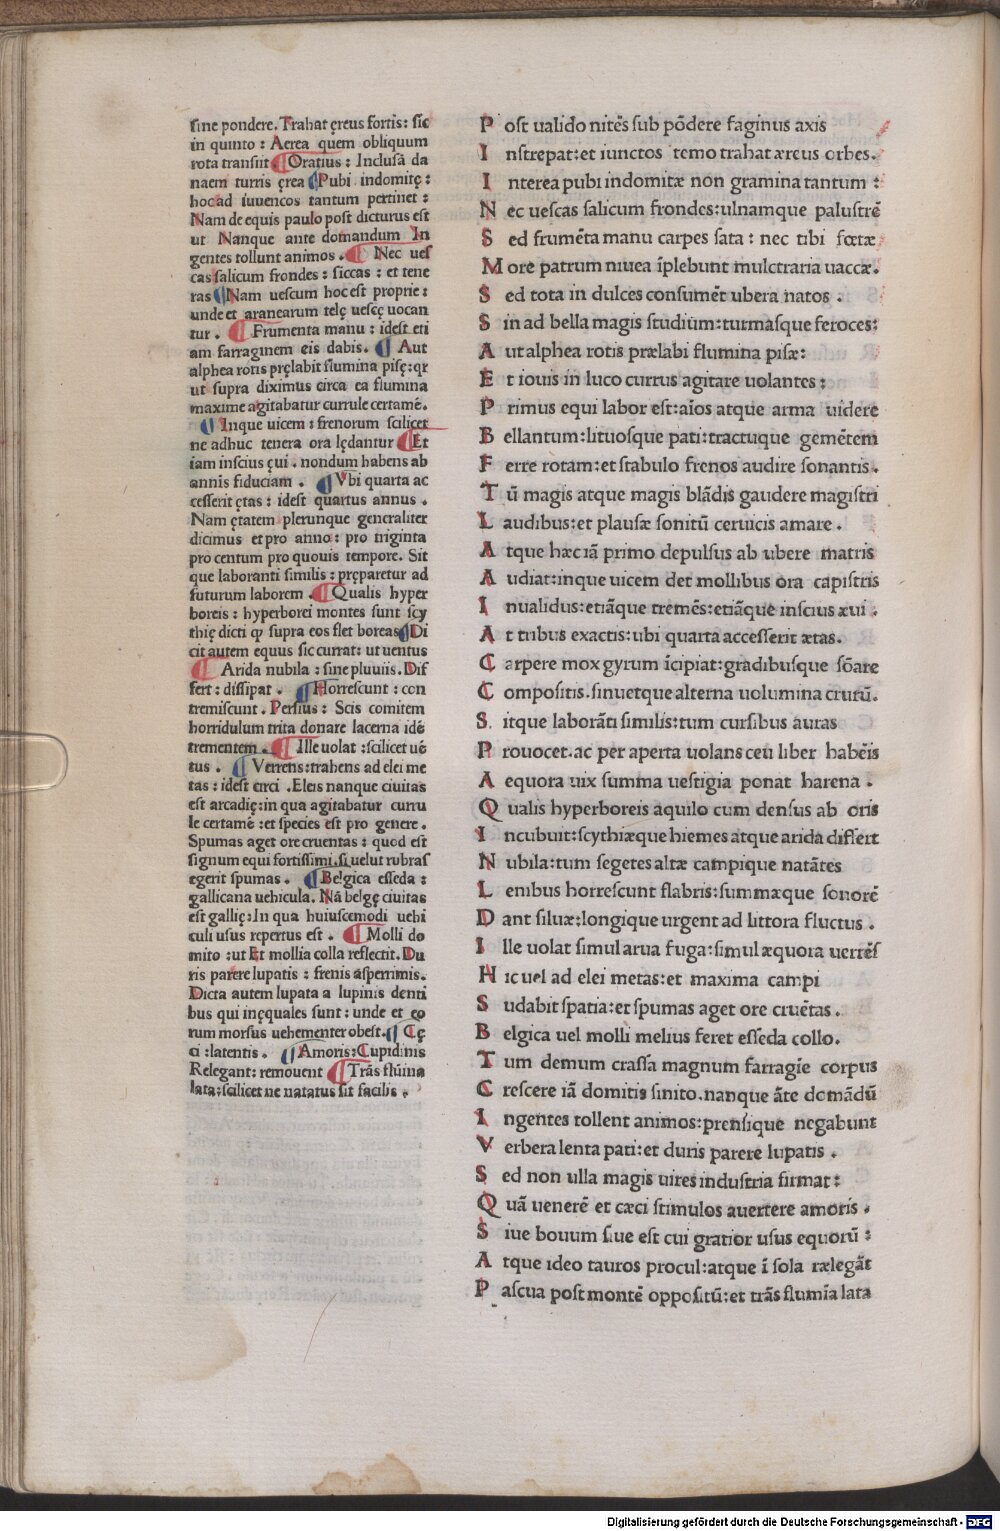 sine pondere. Trahat ęreus fortis: sic
in quinto: Aerea quem obliquum
rota transiit. ¶ Oratius: Inclusā da
naem turris ęrea ¶ Pubi indomitę:
hoc ad iuuencos tantum pertinet:
Nam de equis paulo post dicturus est
ut Nanque ante domandum In
gentes tollunt animos. ¶ Nec ues
cas salicum frondes: siccas: et tene
ras ¶ Nam uescum hoc est proprie:
unde et aranearum telę uescę uocan
tur. ¶ Frumenta manu: idest eti
am farraginem eis dabis. ¶ Aut
alphea rotis pręlabit flumina pisę: qr
ut supra diximus circa ea flumina
maxime agitabatur currule certamē.
¶ Inque uicem: frenorum scilicet
ne adhuc tenera ora lędantur ¶ Et
iam inscius ęui. nondum habens ab
annis fiduciam. ¶ Vbi quarta ac
cesserit ętas: idest quartus annus.
Nam ętatem plerunque generaliter
dicimus et pro anno: pro triginta
pro centum pro quouis tempore. Sit
que laboranti similis: pręparetur ad
futurum laborem. ¶ Qualis hyper
boreis: hyperborei montes sunt scy
thię dicti ꝙ supra eos flet boreas ¶ Di
cit autem equus sic currat: ut uentus
¶ Arida nubila: sine pluuiis. Dif
fert: dissipat. ¶ Horrescunt: con
tremiscunt. Persius: Scis comitem
horridulum trita donare lacerna idē
trementem. ¶ Ille uolat: scilicet uē
tus. ¶ Verrens: trahens ad elei me
tas: idest circi. Eleis nanque ciuitas
est arcadię: in qua agitabatur curru
le certamē: et species est pro genere.
Spumas aget ore cruentas: quod est
signum equi fortissimi. si uelut rubras
egerit spumas. ¶ Belgica esseda:
gallicana uehicula. Nā belgę ciuitas
est gallię: In qua huiuscemodi uehi
culi usus repertus est. ¶ Molli do
mito: ut Et mollia colla reflectit. Du
ris parere lupatis: frenis asperrimis.
Dicta autem lupata a lupinis denti
bus qui inęquales sunt: unde et eo
rum morsus uehementer obest. ¶ Cę
ci: latentis. ¶ Amoris: Cupidinis
Relegant: remouent ¶ Trās flūina
lata: scilicet ne natatus sit facilis.
Post ualido nitēs sub pōdere faginus axis
Instrepat: et iunctos temo trahat æreus orbes.
Interea pubi indomitæ non gramina tantum:
Nec uescas salicum frondes: ulnamque palustrē
Sed frumēta manu carpes sata: nec tibi fœtæ
More patrum niuea īplebunt mulctraria uaccæ.
Sed tota in dulces consumēt ubera natos.
Sin ad bella magis studium: turmasque feroces:
Aut alphea rotis prælabi flumina pisæ:
Et iouis in luco currus agitare uolantes:
Primus equi labor est: aīos atque arma uidere
Bellantum: lituosque pati: tractuque gemētem
Ferre rotam: et stabulo frenos audire sonantis.
Tū magis atque magis blādis gaudere magistri
Laudibus: et plausæ sonitū ceruicis amare.
Atque hæc iā primo depulsus ab ubere matris
Audiat: inque uicem det mollibus ora capistris
Inualidus: etiāque tremēs: etiāque inscius æui.
At tribus exactis: ubi quarta accesserit ætas.
Carpere mox gyrum īcipiat: gradibusque sōare
Compositis. sinuetque alterna uolumina crurū.
Sitque laborāti similis: tum cursibus auras
Prouocet. ac per aperta uolans ceu liber habēis
Aequora uix summa uestigia ponat harena.
Qualis hyperboreis aquilo cum densus ab oris
Incubuit: scythiæque hiemes atque arida differt
Nubila: tum segetes altæ campique natātes
Lenibus horrescunt flabris: summæque sonorē
Dant siluæ: longique urgent ad littora fluctus.
Ille uolat simul arua fuga: simul æquora uerrēs
Hic uel ad elei metas: et maxima campi
Sudabit spatia: et spumas aget ore cruētas.
Belgica uel molli melius feret esseda collo.
Tum demum crassa magnum farragīe corpus
Crescere iā domitis sinito. nanque āte domādū
Ingentes tollent animos: prensique negabunt
Verbera lenta pati: et duris parere lupatis.
Sed non ulla magis uires industria firmat:
Quā uenerē et cæci stimulos auertere amoris.
Siue bouum siue est cui gratior usus equorū:
Atque ideo tauros procul: atque ī sola rælegāt
Pascua post montē oppositū: et trās flumīa lata
Digitalisierung gefördert durch die Deutsche Forschungsgemeinschaft - DFG